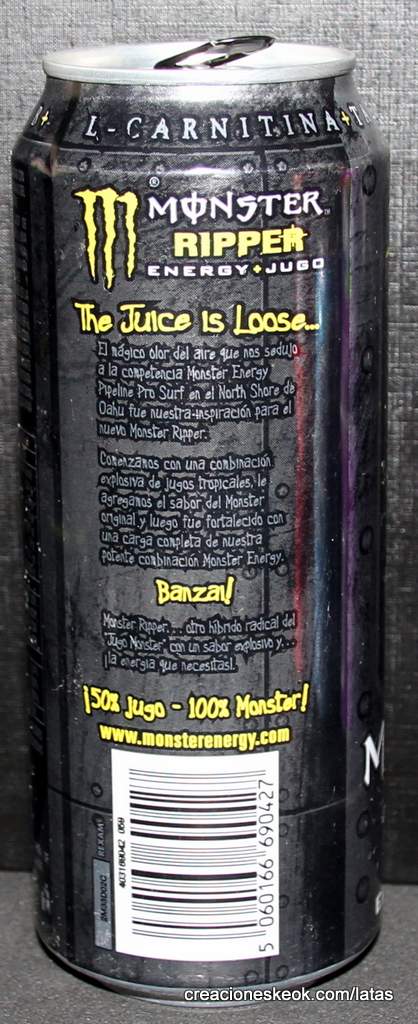 L-CARNITINA+T
®
MONSTER™
RIPPER
ENERGY+JUGO
The Juice is Loose...
El mágico olor del aire que nos sedujo
a la competencia Monster Energy
Pipeline Pro Surf en el North Shore de
Oahu fue nuestra inspiración para el
nuevo Monster Ripper.
Comenzamos con una combinación
explosiva de jugos tropicales, le
agregamos el sabor del Monster
original y luego fue fortalecido con
una carga completa de nuestra
potente combinación Monster Energy.
Banzai!
Monster Ripper. . . otro híbrido radical del
"Jugo Monster", con un sabor explosivo y. . .
¡la energía que necesitas!.
¡50% jugo - 100% Monster!
www.monsterenergy.com
REXAM
5 060166 690427
creacioneskeok.com/latas